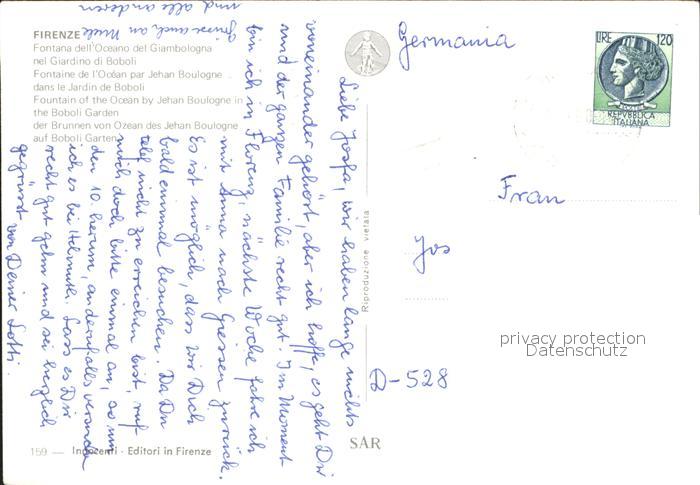 FIRENZE
Fontana dell'Oceano del Giambologna
nel Giardino di Boboli
Fontaine de l'Océan par Jehan Boulogne
dans le Jardin de Boboli
Fountain of the Ocean by Jehan Boulogne in
the Boboli Garden
der Brunnen von Ozean des Jehan Boulogne
auf Boboli Garten
Liebe Josfa, wir haben lange nichts
voneinander gehört, aber ich hoffe, es geht Dir
und der ganzen Familie recht gut. Im Moment
bin ich in Florenz, nächste Woche fahre ich
mit Anna nach Giessen zurück.
Es ist möglich, dass wir Dich
bald einmal besuchen. Da Du
telef. nicht zu erreichen bist, ruf
mich doch bitte einmal an, so um
den 10. herum, andernfalls versuche
ich es bei Helmuth. Lass es Dir
recht gut gehn und sei herzlich
gegrüsst von Deiner Lotti.
Grüsse auch an
und alle anderen
Riproduzione vietata
159 — Innocenti - Editori in Firenze
SAR
LIRE 120
REPVBBLICA
ITALIANA
Germania
Frau
Jos
D-528
privacy protection
Datenschutz